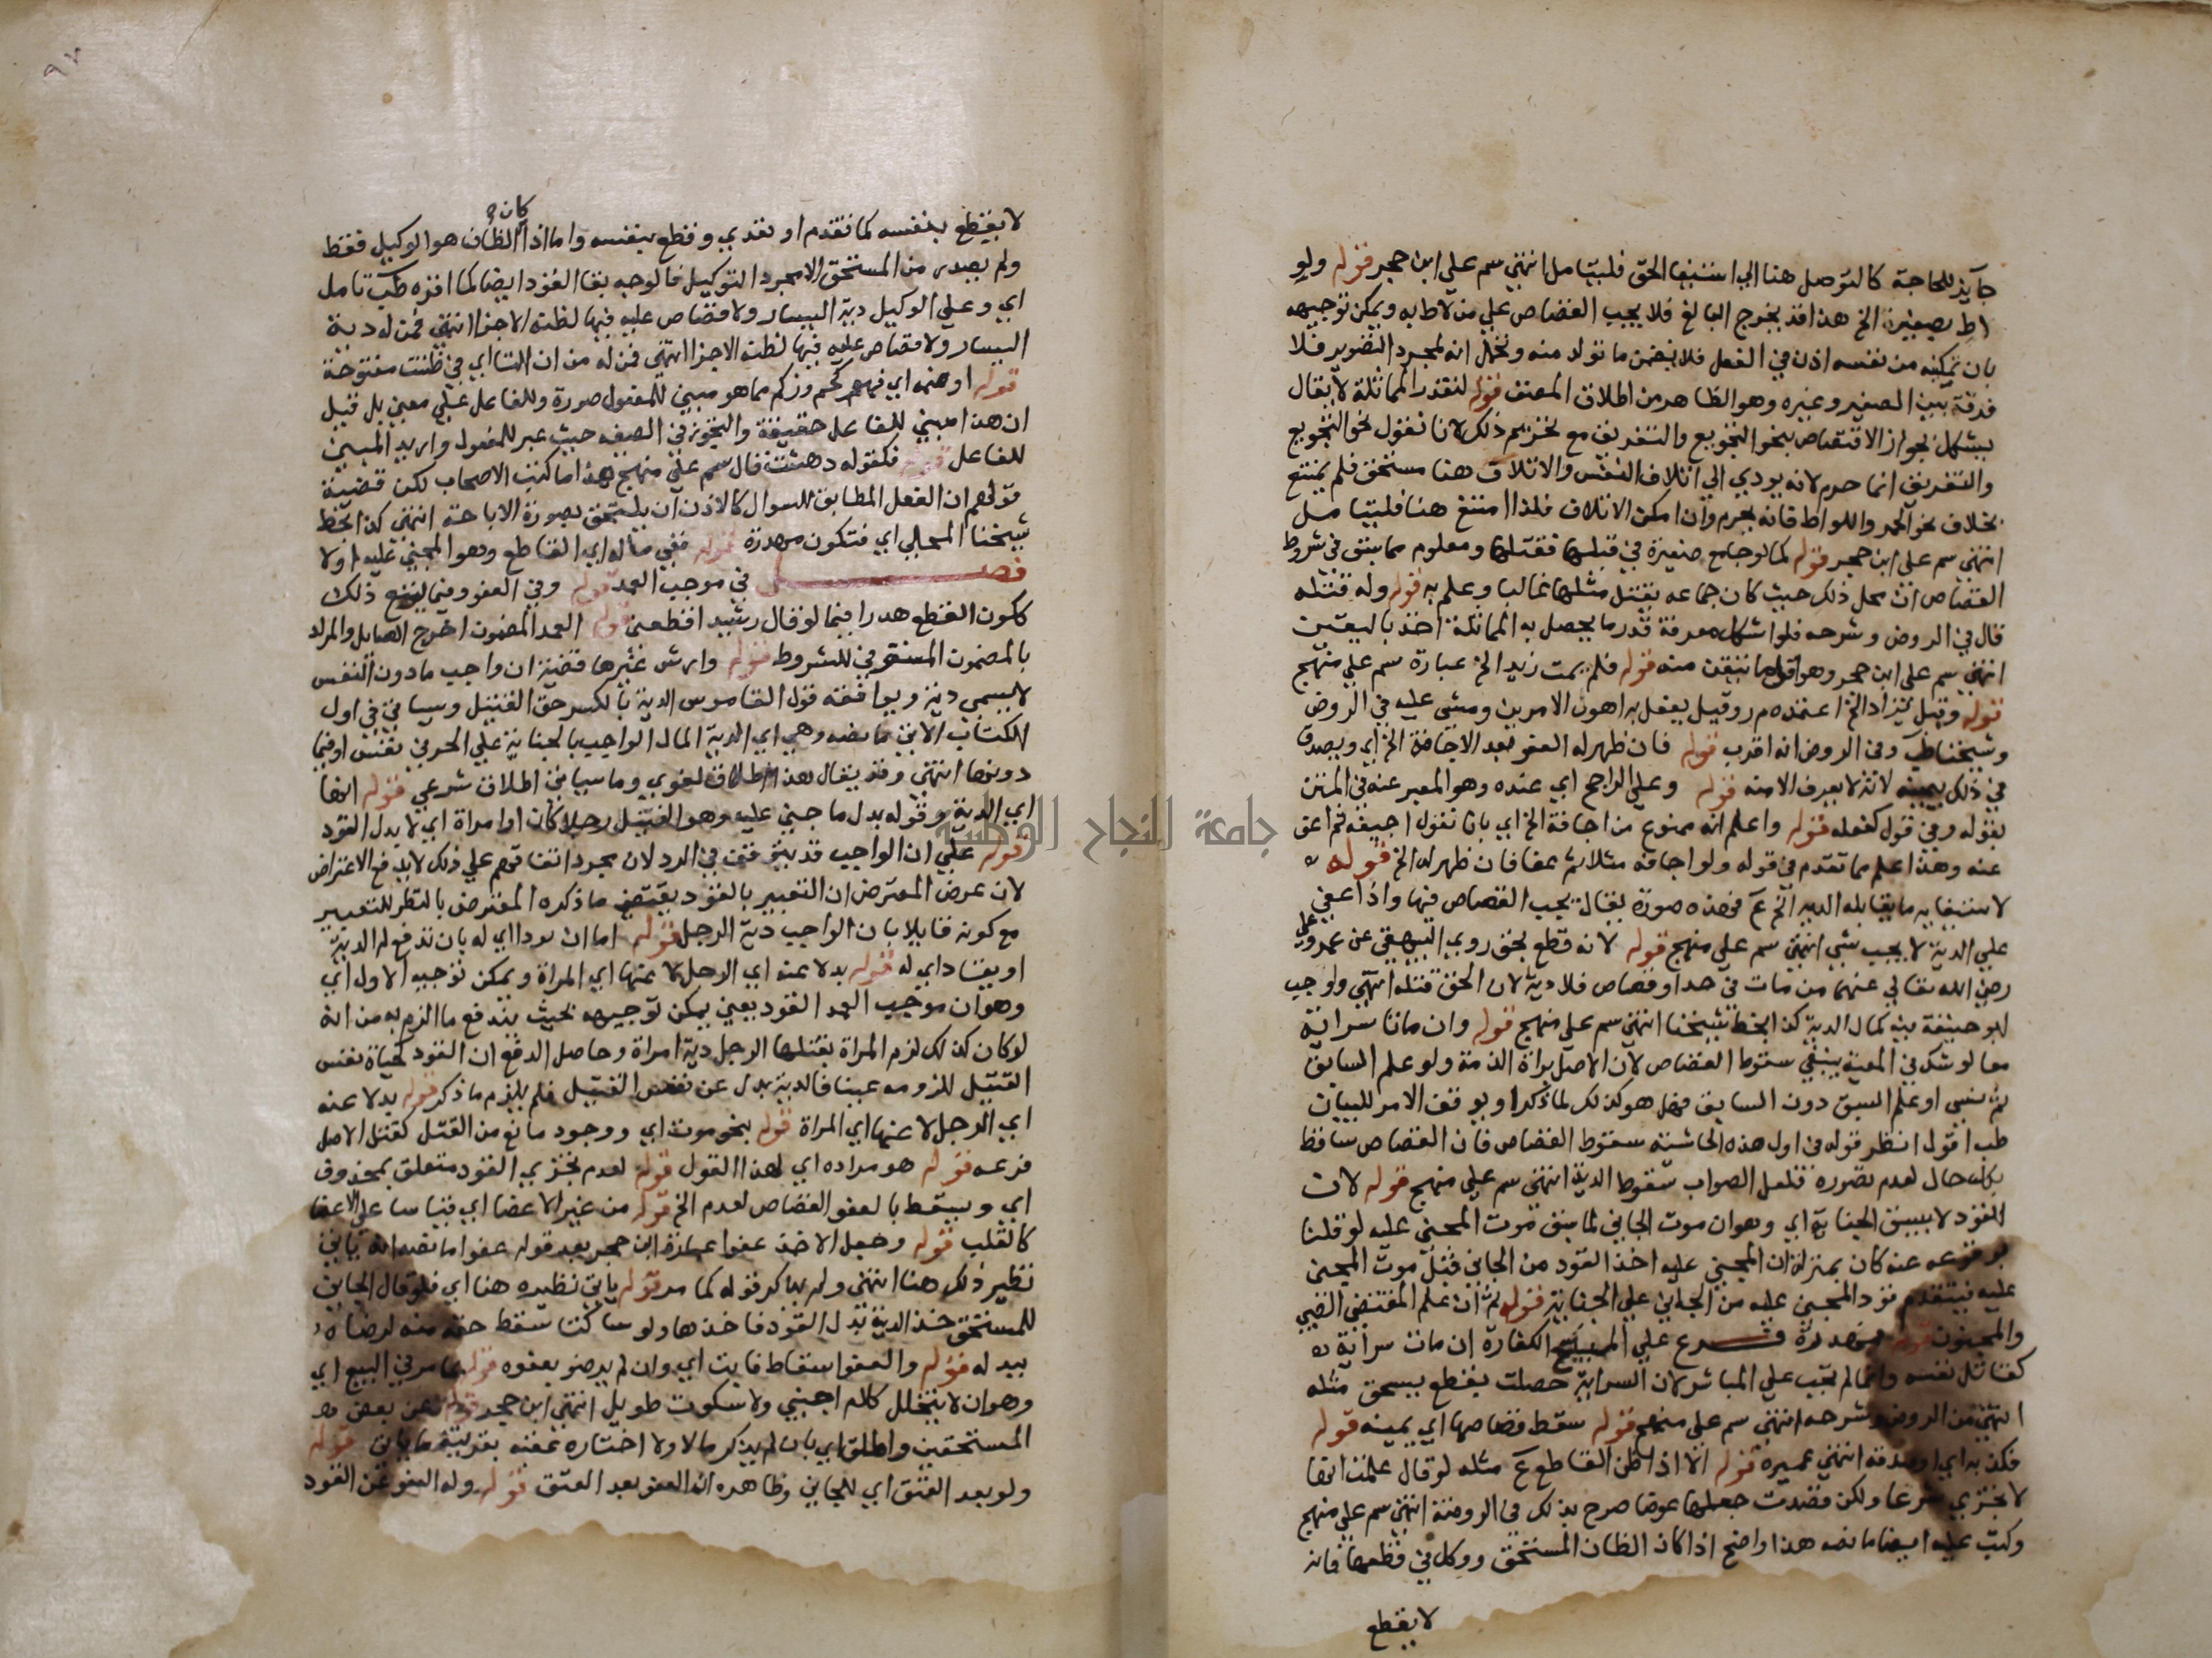 جايز للحاجة كالتوصل هنا الي استيفا الحق فليتامل انتهي سم علي ابن حجر قوله ولو
لاط بصغير الخ هذا قد يخرج البالغ فلا يجب القصاص علي من لاط به ويمكن توجيهه
بان تمكينه من نفسه اذن في الفعل فلا يضمن ما تولد منه ويحتمل انه لمجرد التصوير فلا
فرق بين الصغير وغيره وهو الظاهر من اطلاق المصنف قوله لتعذر المماثلة لا يقال
يشكل بجواز الاقتصاص بنحو التجويع والتغريق مع تحريم ذلك لانا نقول نحو التجويع
والتغريق انما حرم لانه يودي الي اتلاف النفس والاتلاف هنا مستحق فلم يمتنع
بخلاف نحو الخمر واللواط فانه يحرم وان امكن الاتلاف فلذا امتنع هنا فليتامل
انتهي سم علي ابن حجر قوله كما لو جامع صغيرة في قبلها فقتلها ومعلوم مما سبق في شروط
القصاص ان محل ذلك حيث كان جماعه يقتل مثلها غالبا وعلم به قوله وله قتله
قال في الروض وشرحه فلو اشكل معرفة قدر ما يحصل به المماثلة اخذ باليقين
انتهي سم علي ابن حجر وهو اقل ما تيقن منه قوله فلم يمت زيد الخ عبارة سم علي منهج
قوله وقيل يزاد الخ اعتمده م ر وقيل يفعل به اهون الامرين ومشي عليه في الروض
وشيخنا طب وفي الروض انه اقرب قوله فان ظهر له العفو بعد الاجافة الخ اي ويصدق
في ذلك بيمينه لانه لا يعرف الا منه قوله وعلي الراجح اي عنده وهو المعبر عنه في المتن
بقوله وفي قول كفعله قوله واعلم انه ممنوع من اجافة الخ اي بان نقول اجيفه ثم اعفو
عنه وهذا علم مما تقدم في قوله ولو اجافه مثلا ثم عفا فان ظهر له الخ قوله
لاستيفايه ما يقابله الدية الخ ع فهذه صورة يقال يجب القصاص فيها واذا عفي
علي الدية لا يجب شي انتهي سم علي منهج قوله لانه قطع بحق روي البيهقي عن عمر وعلي
رضي الله تعالي عنهما من مات في حد او قصاص فلا دية لان الحق قتله انتهي واوجب
ابو حنيفة فيه كمال الدية كذا بخط شيخنا انتهي سم علي منهج قوله وان ماتا سراية
معا لو شك في المعية ينبغي سقوط القصاص لان الاصل براة الذمة ولو علم السابق
ثم نسي او علم السبق دون السابق فهل هو كذلك لما ذكر او يوقف الامر للبيان
طب اقول انظر قوله في اول هذه الحاشية سقوط القصاص فان القصاص ساقط
بكل حال لعدم تصوره فلعل الصواب سقوط الدية انتهي سم علي منهج قوله لان
القود لا يسبق الجناية اي وهو ان موت الجاني لما سبق موت المجني عليه لو قلنا
بوقوعه عنه كان بمنزلة ان المجني عليه اخذ القود من الجاني قبل موت المجني
عليه فيتقدم قود المجني عليه من الجاني علي الجناية قوله ثم ان علم المقتضي الصبي
والمجنون قوله مهدرة فرع علي الكفارة ان مات سراية
كقاتل نفسه وانما لم تجب علي المباشر لان السراية حصلت بقطع يستحق مثله
انتهي من الروض وشرحه انتهي سم علي منهج قوله سقط قصاصها اي يمينه قوله
فكذبه اي او صدقه انتهي عميره قوله الا اذا ظن القاطع ع مثله لو قال علمت انها
لا تجزي شرعا ولكن قصدت جعلها عوضا صرح بذلك في الروضة انتهي سم علي منهج
وكتب عليه ايضا ما نصه هذا واضح اذا كان الظان المستحق ووكل في قطعها فانه
لا يقطع
لا يقطع بنفسه كما تقدم او تعدي وقطع بنفسه واما اذا كان الظان هو الوكيل فقط
ولم يصدر من المستحق الا مجرد التوكيل فالوجه بقا القود ايضا كما اقره طب تامل
اي وعلي الوكيل دية اليسار ولا قصاص عليه فيها لظنه الاجزا انتهي فمن له دية
اليسار ولا قصاص عليه فيها لظنه الاجزا انتهي فمن له من ان التا اي في ظننت مفتوحة
قوله او هنه اي فهم كحم وزكم مما هو مبني للمفعول صورة وللفاعل علي معني بل قيل
ان هذا مبني للفاعل حقيقة والتجوز في الصيغة حيث عبر للمفعول واريد المبني
للفاعل قوله فكقوله دهشت قال سم علي منهج هذا ما كتب الاصحاب لكن قضية
قولهم ان الفعل المطابق للسوال كالاذن ان يلتحق بصورة الاباحة انتهي كذا بخط
شيخنا المحلي اي فتكون مهدرة قوله ففي ماله اي القاطع وهو المجني عليه اولا
فصل في موجب العمد قوله وفي العفو وفيما يتبع ذلك
ككون القطع هدرا فيما لو قال رشيد اقطعني قوله العمد المضمون اخرج الصايل والمراد
بالمضمون المستوفي للشروط قوله وارش غيرها قضيته ان واجب ما دون النفس
لا يسمي دية ويوافقه قول القاموس الدية بالكسر حق القتيل وسياتي في اول
الكتاب الاتي ما نصه وهي اي الدية المال الواجب بالجناية علي الحر في نفس او فيما
دونها انتهي وقد يقال هذا اطلاق لغوي وما سياتي اطلاق شرعي قوله انها
اي الدية وقوله بدل ما جني عليه وهو القتيل رجلا كان او امراة اي لا بدل القود
قوله علي ان الواجب قد يتوقف في الرد لان مجرد اتفاقهم علي ذلك لا يدفع الاعتراض
لان غرض المعترض ان التعبير بالقود يقتضي ما ذكره المعترض بالنظر للتعبير
مع كونه قايلا بان الواجب دية الرجل قوله اما ان يودا اي له بان تدفع له الدية
او يقاد اي له قوله بدلا عنه اي الرجل لا عنها اي المراة ويمكن توجيه الاول اي
وهو ان موجب العمد القود يعني يمكن توجيهه بحيث يندفع ما الزم به من انه
لو كان كذلك لزم المراة بقتلها الرجل دية امراة وحاصل الدفع ان القود كحياة نفس
القتيل للزومه عينا فالدية بدل عن نفس القتيل فلم يلزم ما ذكر قوله بدلا عنه
اي الرجل لا عنها اي المراة قوله بنحو موت اي ووجود مانع من القتل كقتل الاصل
فرعه قوله هو مراده اي لهذا القول قوله لعدم تجزي القود متعلق بمحذوف
اي ويسقط بالعفو القصاص لعدم الخ قوله من غير الاعضا اي قياسا علي الاعضا
كالقلب قوله وجعل الاخذ عفوا عبارة ابن حجر بعد قوله عفوا ما نصه انه ياتي
نظير ذلك هنا انتهي ولم يذكر قوله كما مر قوله ياتي نظيره هنا اي فلو قال الجاني
للمستحق خذ الدية بدل القود فاخذها ولو ساكتا سقط حقه منه لرضاه
بيد له قوله والعفو اسقاط فايت اي وان لم يرض بعفوه قوله كما مر في البيع اي
وهو ان لا يتخلل كلام اجنبي ولا سكوت طويل انتهي ابن حجر قوله عن بعض
المستحقين واطلق اي بان لم يذكر مالا ولا اختاره عقبه بقرينة ما ياتي قوله
ولو بعد العتق اي للجاني وظاهره ان العفو بعد العتق قوله وله العفو عن القود
جامعة النجاح الوطنية
٩٧